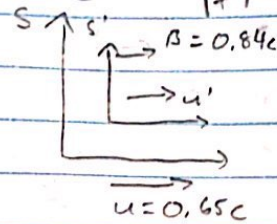 S S' B = 0.84c
→ u'
u = 0.65c